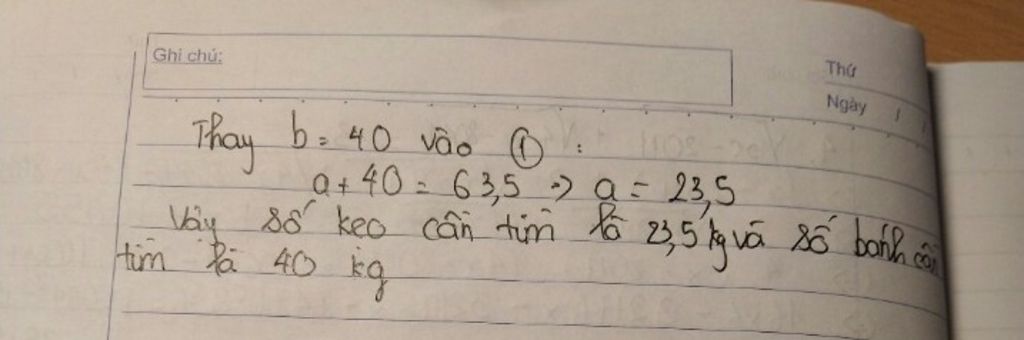 Ghi chú:
Thứ
Ngày / /
Thay b = 40 vào ① :
a + 40 = 63,5 => a = 23,5
Vậy số kẹo cần tìm là 23,5 kg và số bánh cần
tìm là 40 kg